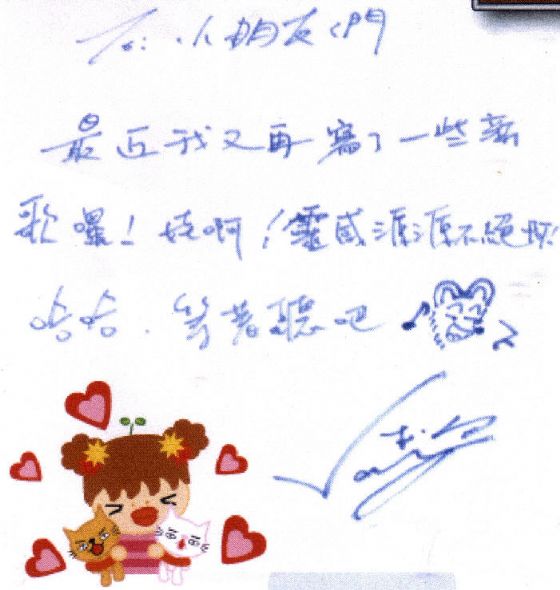 To: 小朋友們
最近我又再寫了一些新
歌囉！ 啊！靈感源源不絕
哈哈．等著聽吧